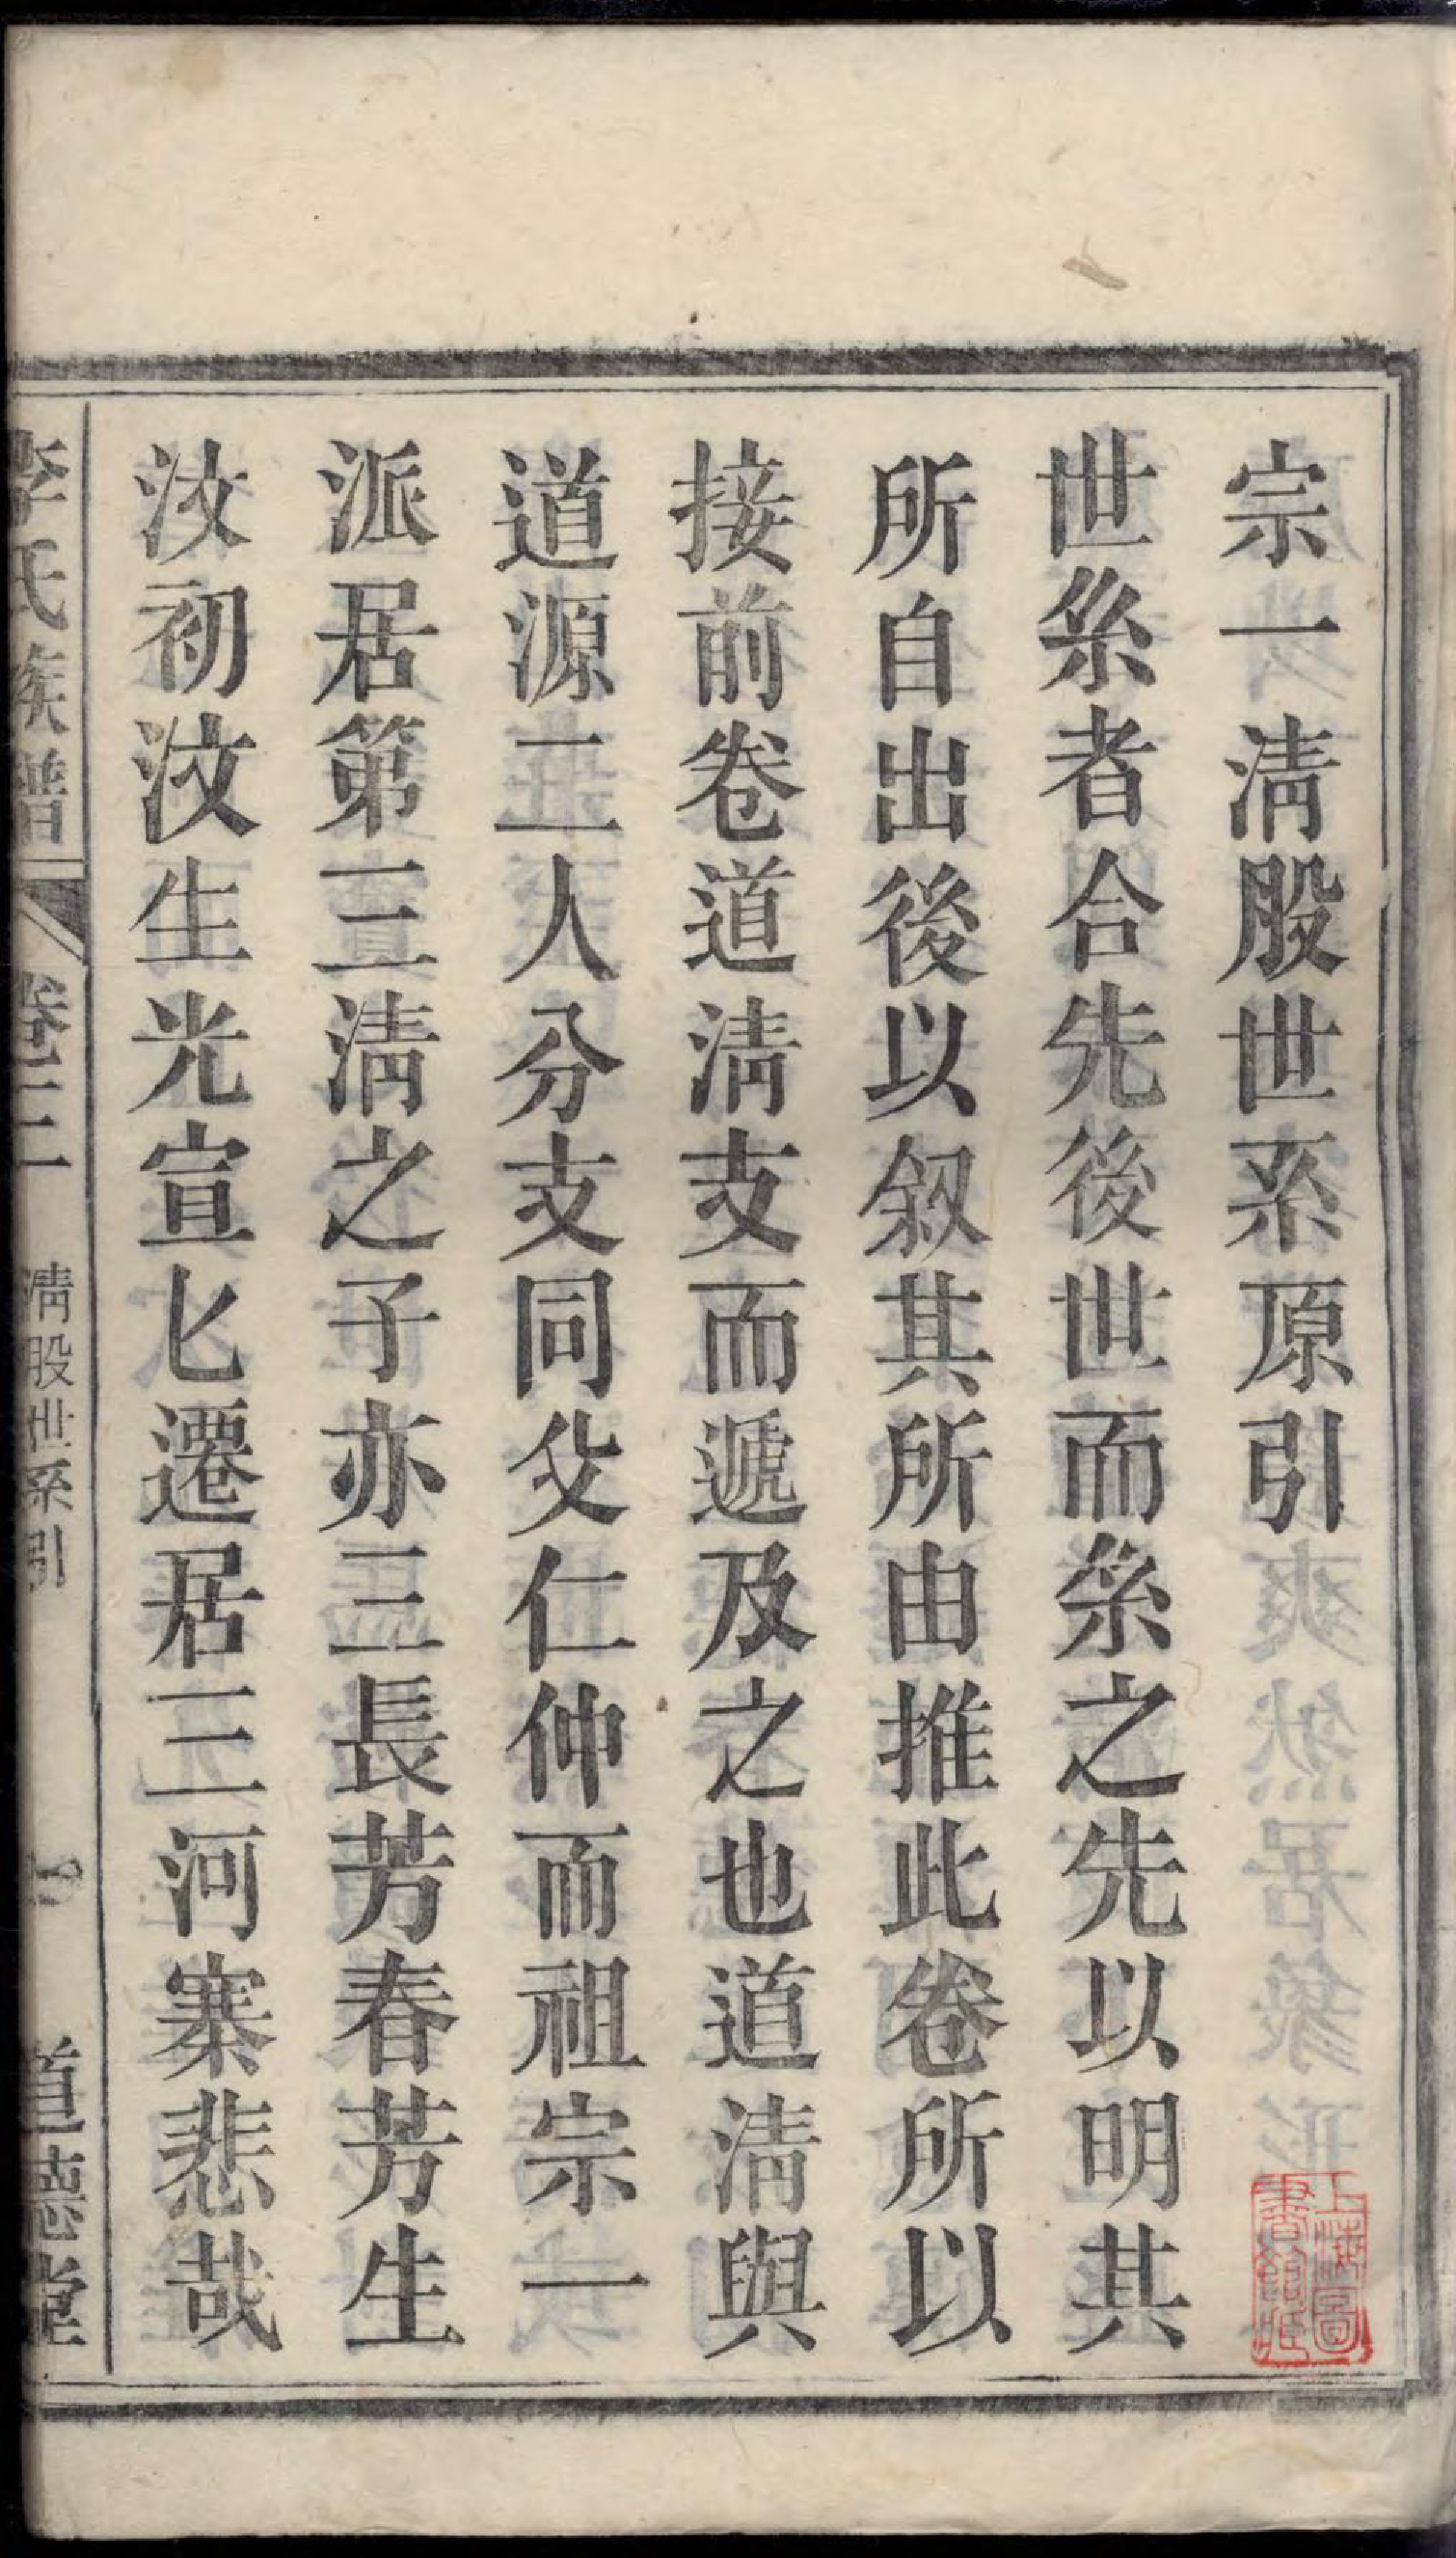 宗一清股世系原引
世系者合先後世而系之先以明其
所自出後以叙其所由推此卷所以
接前卷道清支而遞及之也道清與
道源二人分支同父仁仲而祖宗一
派居第三清之子亦三長芳春芳生
汶初汶生光宣匕遷居三河寨悲哉
李氏族譜
卷三
清股世系引
道德堂
上海圖
書館藏